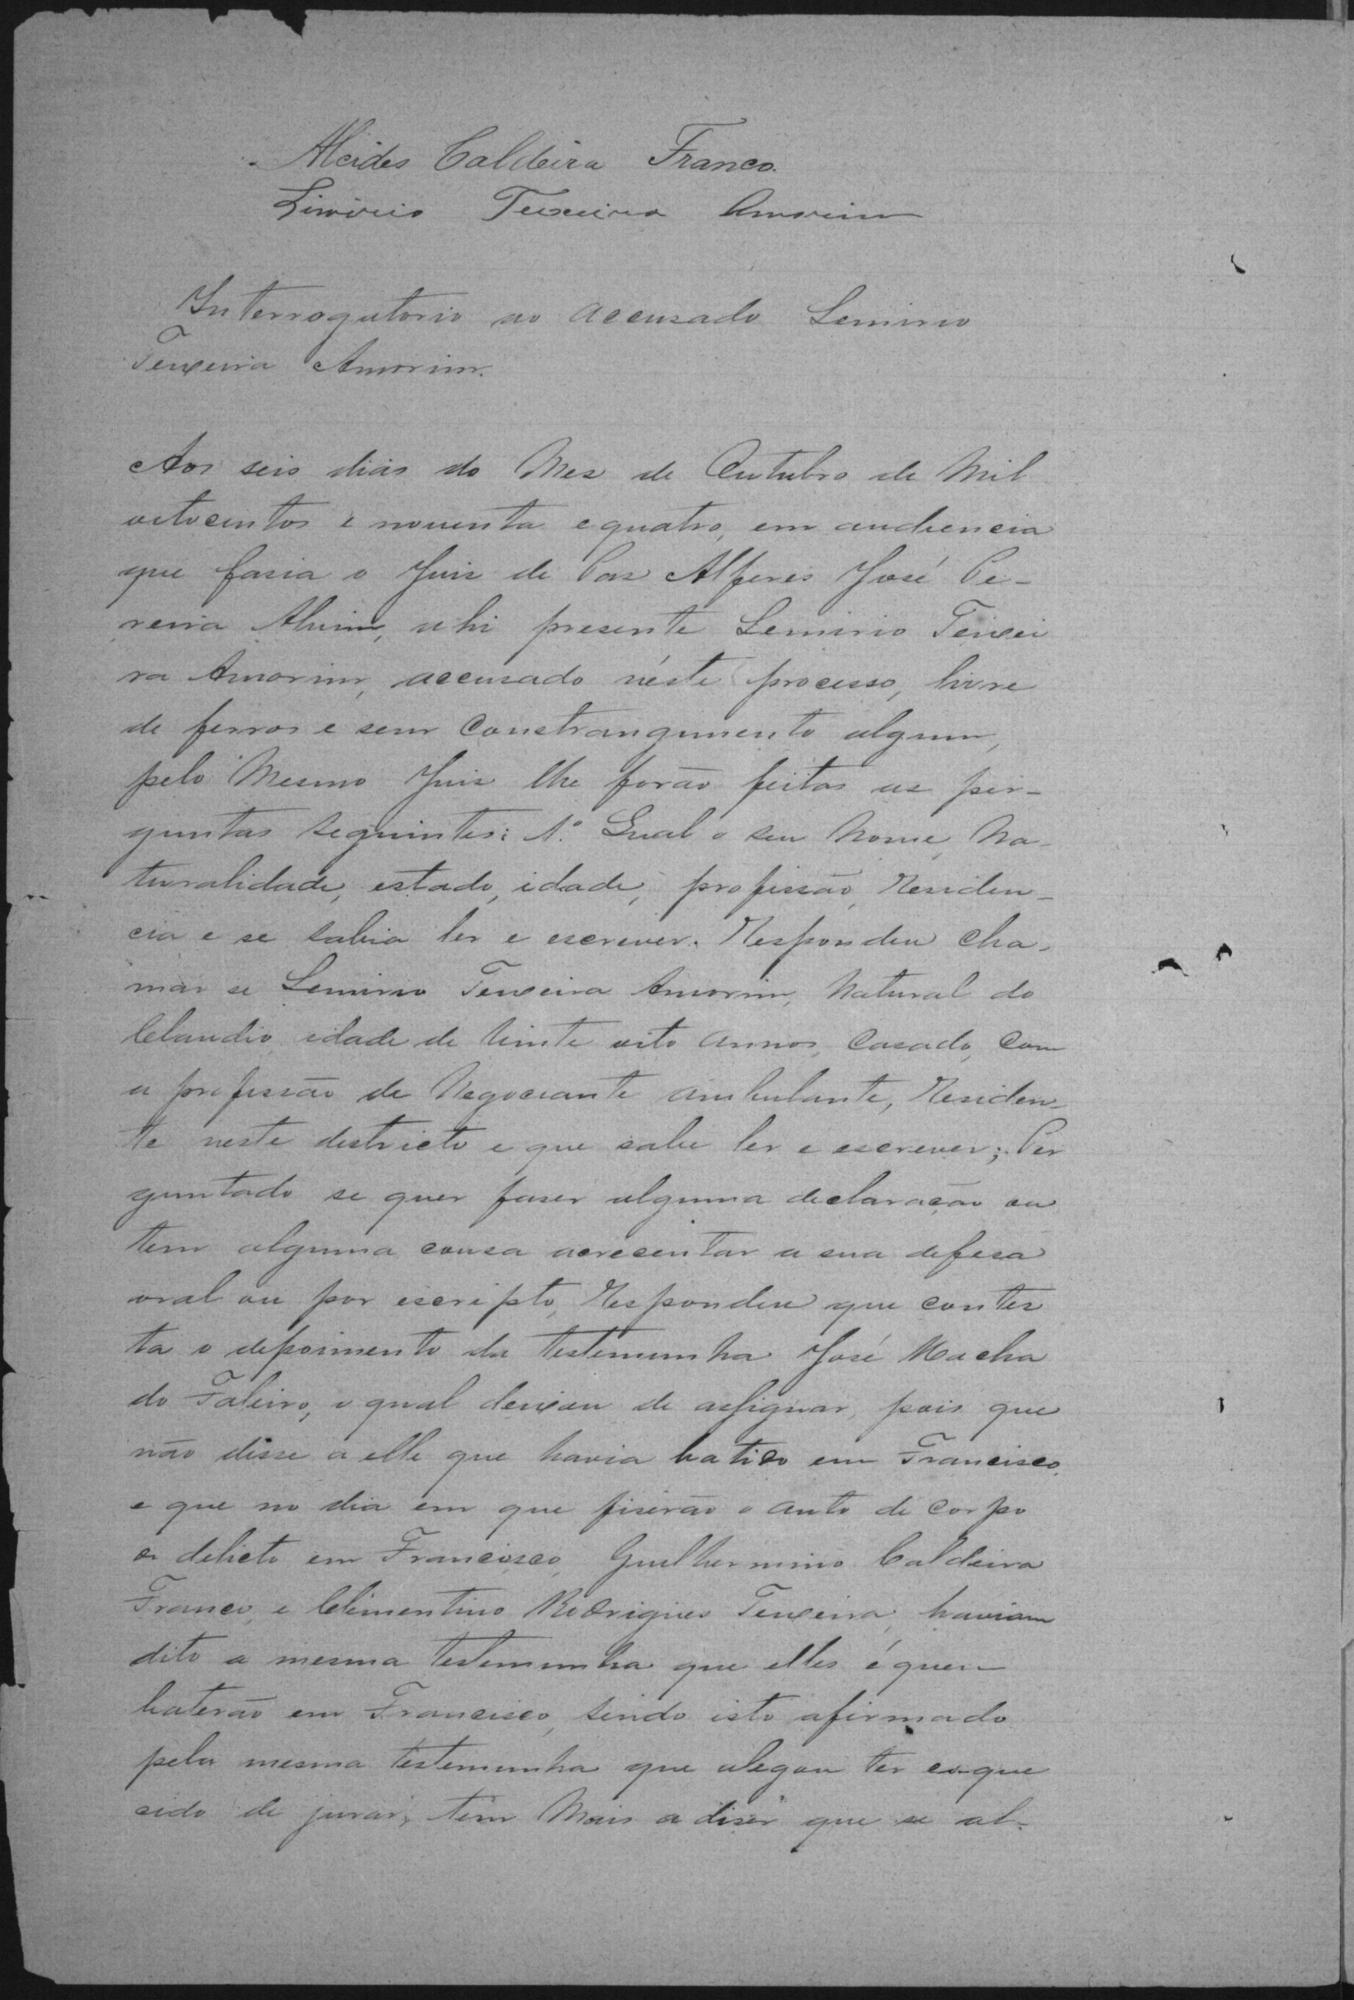 Alcides Caldeira Franco.
Limirio Teixeira Amorim
Interrogatorio ao accusado Limirio
Teixeira Amorim.
Aos seis dias do Mes de Outubro de Mil
oitocentos e noventa e quatro, em audiencia
que fasia o Juis de Pas Alferes José Pe-
reira Alvim, ahi presente Limirio Teixei
ra Amorim, accusado néste processo, livre
de ferros e sem constrangimento algum,
pelo Mesmo Juis lhe forão feitas as per-
guntas seguintes: 1.º Qual o seu Nome, Na-
turalidade, estado, idade, profissão, Residen-
cia e se sabia ler e escrever. Respondeu cha-
mar se Limirio Teixeira Amorim, Natural do
Claudio, idade de vinte oito annos, casado, com
a profissão de Negociante ambulante, Residen-
te neste districto e que sabe ler e escrever; Per
guntado se quer faser alguma declaração ou
tem alguma cousa acresentar a sua defesa
oral ou por escripto, Respondeu que contes
ta o depoimento da testemunha José Macha
do Faleiro, o qual deixou de assignar, pois que
não disse a elle que havia batido em Francisco,
e que no dia em que fiserão o auto de corpo
de delicto em Francisco, Guilhermino Caldeira
Franco, e Clementino Rodrigues Teixeira, haviam
dito a mesma testemunha que elles é quem
baterão em Francisco, sendo isto afirmado
pela mesma testemunha que alegou ter esque
cido de jurar, tem Mais a diser que se al-